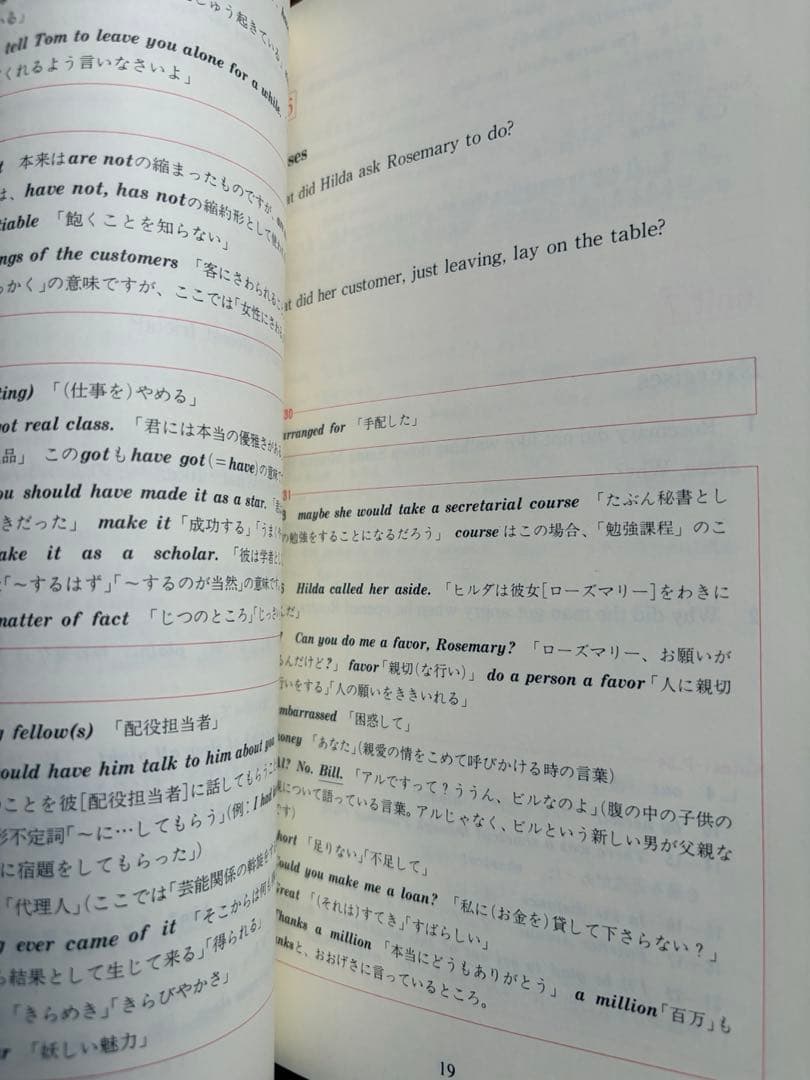 ゅう起きている」
tell Tom to leave you alone for a while.
くれるよう言いなさいよ」
本来はare notの縮まったものですが、
は、have not, has notの縮約形として
「飽くことを知らない」
of the customers 「客にさわられる
の意味ですが、ここでは「女性にさわる
「(仕事を)やめる」
got real class. 「君には本当の優雅さがある
品」 このgotもhave got(=have)の意味で
you should have made it as a star.
きだった」 make it「成功する」「うま
make it as a scholar. 「彼は学者と
「~するはず」「~するのが当然」の意味です。
matter of fact 「じつのところ」「じっさい
fellow(s) 「配役担当者」
would have him talk to him about you
のことを彼[配役担当者]に話してもらう
形不定詞「~に…してもらう」(例: I had
に宿題をしてもらった」)
「代理人」(ここでは「芸能関係の斡旋を
ever came of it 「そこからは何も
結果として生じて来る」「得られる」
「きらめき」「きらびやかさ」
「妖しい魅力」
did Hilda ask Rosemary to do?
did her customer, just leaving, lay on the table?
30
arranged for 「手配した」
31
maybe she would take a secretarial course 「たぶん秘書とし
の勉強をすることになるだろう」 course はこの場合、「勉強課程」のこ
Hilda called her aside. 「ヒルダは彼女[ローズマリー]をわきに
Can you do me a favor, Rosemary? 「ローズマリー、お願いが
るんだけど?」 favor「親切(な行い)」 do a person a favor「人に親切
行いをする」「人の願いをききいれる」
embarrassed 「困惑して」
honey 「あなた」(親愛の情をこめて呼びかける時の言葉)
Al? No. Bill. 「アルですって?ううん、ビルなのよ」(腹の中の子供の
について語っている言葉。アルじゃなく、ビルという新しい男が父親な
です)
short 「足りない」「不足して」
Could you make me a loan? 「私に(お金を)貸して下さらない?」
Great 「(それは)すてき」「すばらしい」
Thanks a million 「本当にどうもありがとう」 a million「百万」も
と、おおげさに言っているところ。
19